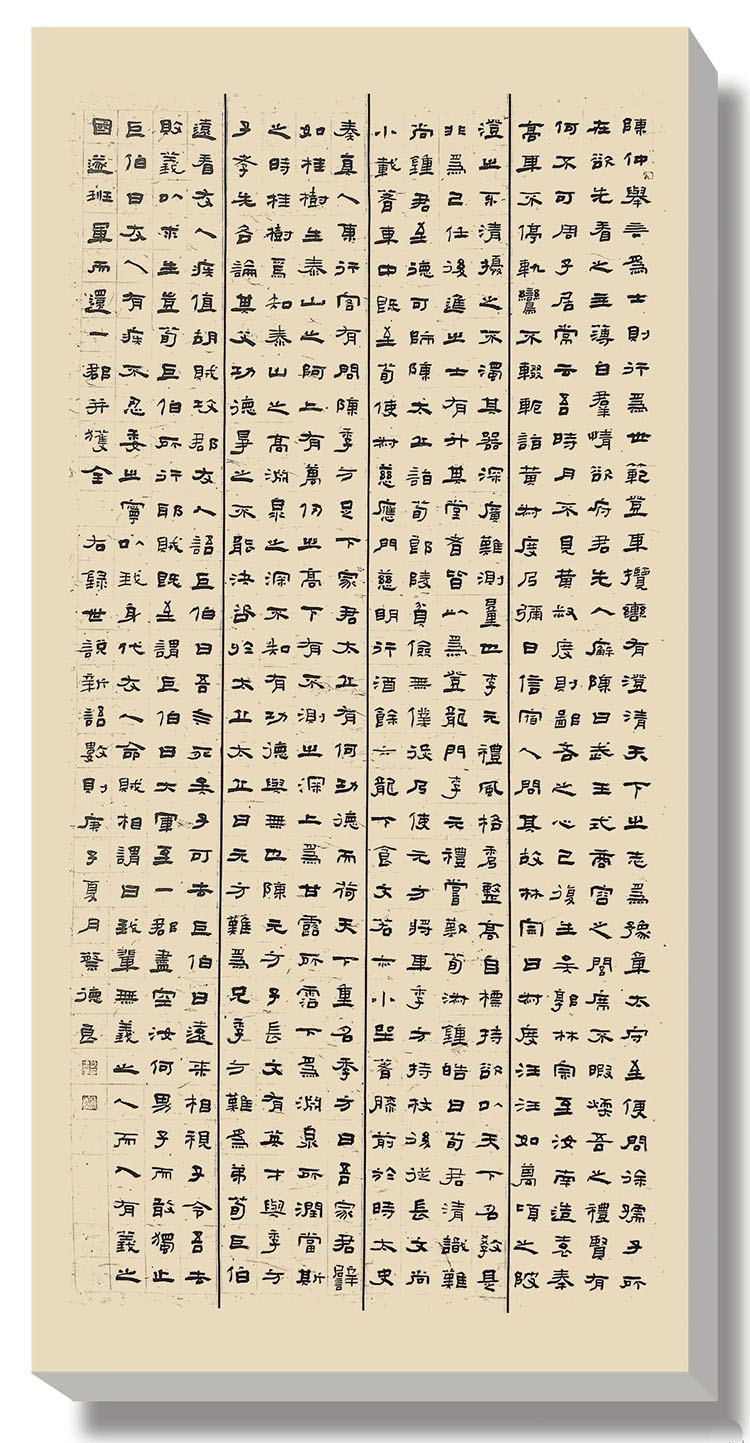 陳仲舉言為士則行為世範登車攬轡有澄清天下之志為豫章太守至便問徐孺子所
在欲先看之主薄白羣情欲府君先入廨陳曰武王式商容之閭席不暇煖吾之禮賢有
何不可周子居常云吾時月不見黃叔度則鄙吝之心已復生矣郭林宗至汝南造袁奉
高車不停軌鸞不輟軛詣黃叔度乃彌日信宿人問其故林宗曰叔度汪汪如萬頃之陂
澄之不清擾之不濁其器深廣難測量也李元禮風格秀整高自標持欲以天下名教是
非為己任後進之士有升其堂者皆以為登龍門李元禮嘗歎荀淑鍾皓曰荀君清識難
尚鍾君至德可師陳太丘詣荀郎陵貧儉無僕役乃使元方將車季方持杖後從長文尚
小載著車中既至荀使叔慈應門慈明行酒餘六龍下食文若亦小坐著膝前於時太史
奏真人東行客有問陳季方足下家君太丘有何功德而荷天下重名季方曰吾家君譬
如桂樹生泰山之阿上有萬仞之高下有不測之深上為甘露所霑下為淵泉所潤當斯
之時桂樹焉知泰山之高淵泉之深不知有功德與無也陳元方子長文有英才與季方
子孝先各論其父功德爭之不能決咨於太丘太丘曰元方難為兄季方難為弟荀巨伯
遠看友人疾值胡賊攻郡友人語巨伯曰吾今死矣子可去巨伯曰遠來相視子令吾去
敗義以求生豈荀巨伯所行耶賊既至謂巨伯曰大軍至一郡盡空汝何男子而敢獨止
巨伯曰友人有疾不忍委之寧以我身代友人命賊相謂曰我輩無義之人而入有義之
國遂班軍而還一郡并獲全 右錄世說新語數則庚子夏月蔡德良